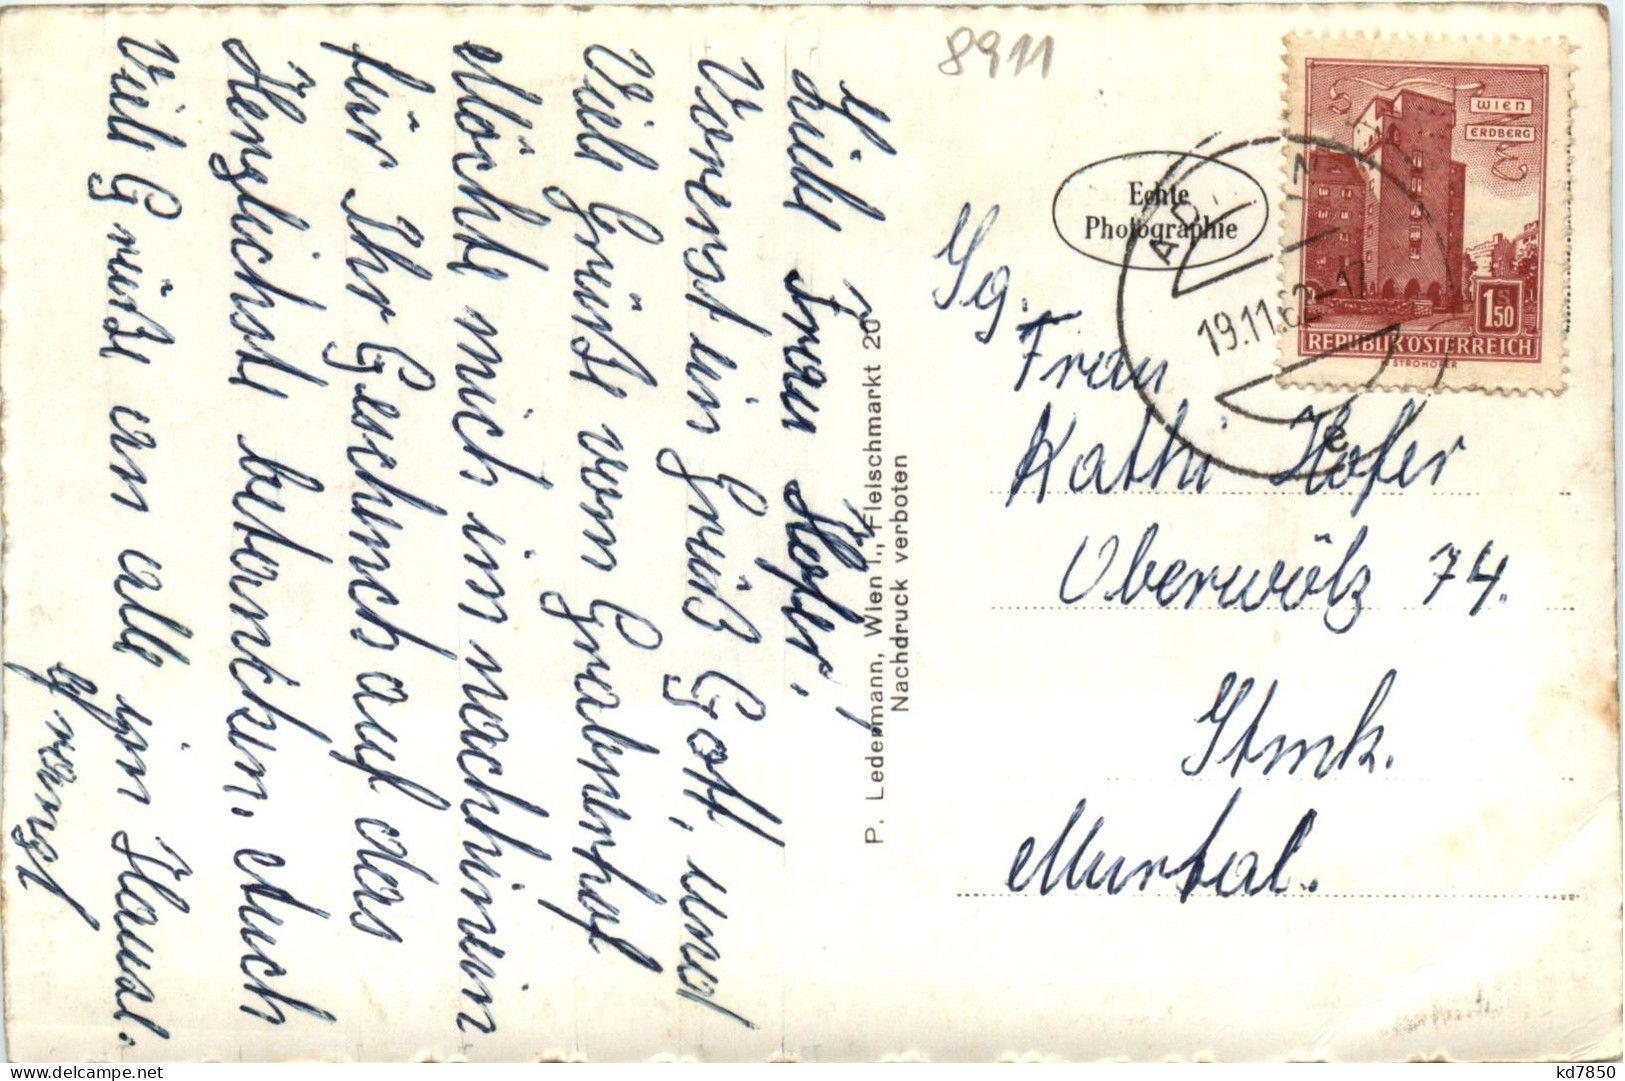 8911
WIEN
ERDBERG
1.50
S
REPUBLIK ÖSTERREICH
STROHOFER
19.11.62-17
Echte
Photographie
Sg.
Frau
Kathi Hofer
Oberwölz 74.
Stmk.
Murtal.
P. Ledermann, Wien I., Fleischmarkt 20
Nachdruck verboten
Liebe Frau Hofer,
Vorerst ein Grüß Gott, und
Viele Grüße vom Grabnerhof
Möchte mich im nachhinein
für Ihr Geschenck auf das
Herzlichste bedancken. Auch
Viele Grüße an alle im Hause.
kd7850